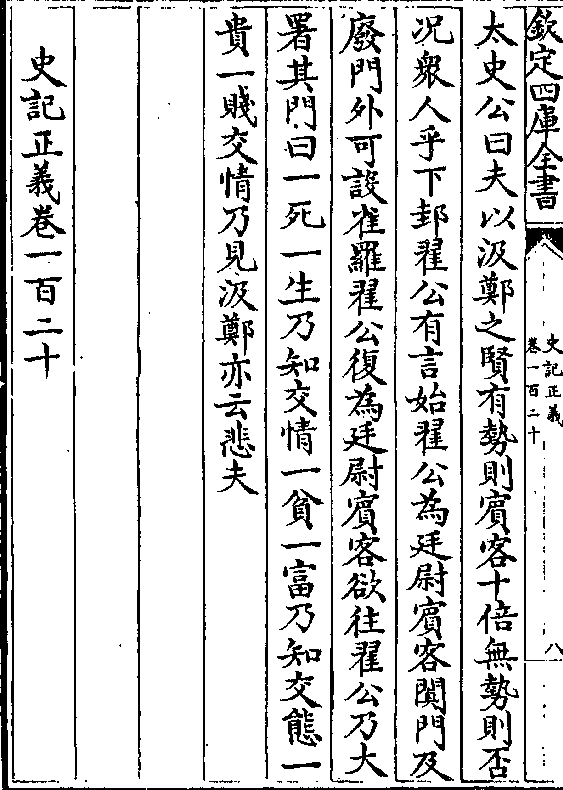 欽定四庫全書
史記正義
卷一百二十
八
太史公曰夫以汲鄭之賢有勢則賓客十倍無勢則否
况衆人乎下邽翟公有言始翟公為廷尉賓客闐門及
廢門外可設雀羅翟公復為廷尉賓客欲往翟公乃大
署其門曰一死一生乃知交情一貧一富乃知交態一
貴一賤交情乃見汲鄭亦云悲夫
史記正義卷一百二十